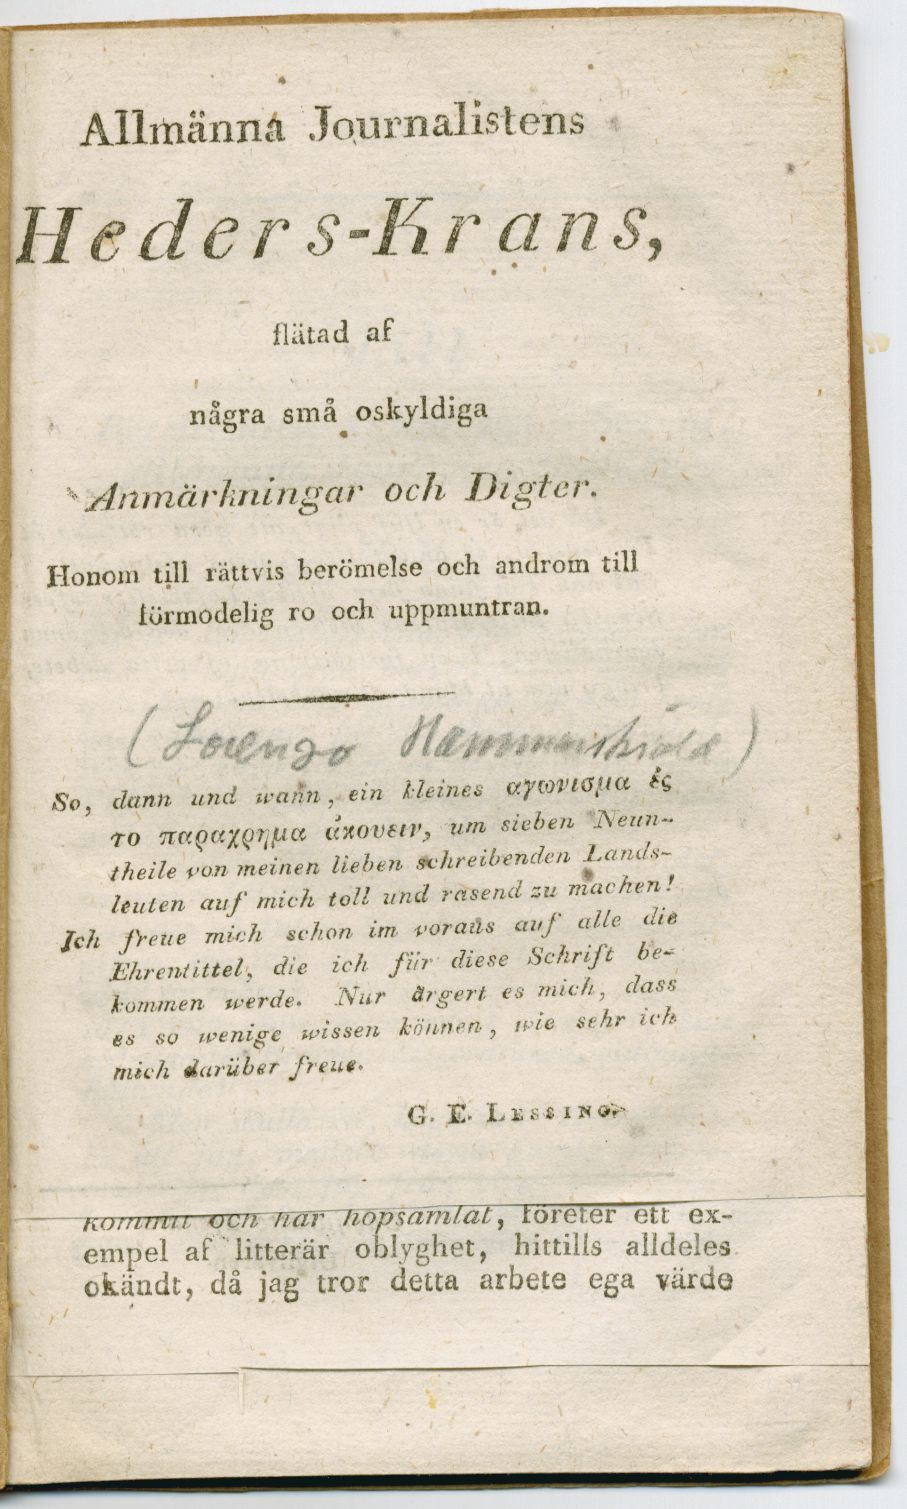 Allmänna Journalistens
Heders-Krans,
flätad af
några små oskyldiga
Anmärkningar och Digter.
Honom till rättvis berömelse och androm till
förmodelig ro och uppmuntran.
(Lorenzo Hammarsköld)
So, dann und wann, ein kleines αγωνισμα ἐς
το παραχρημα ἀκουειν, um sieben Neun-
theile von meinen lieben schreibenden Lands-
leuten auf mich toll und rasend zu machen!
Ich freue mich schon im voraus auf alle die
Ehrentittel, die ich für diese Schrift be-
kommen werde. Nur ärgert es mich, dass
es so wenige wissen können, wie sehr ich
mich darüber freue.
G. E. LESSING.
kommit och har hopsamlat, företer ett ex-
empel af litterär oblyghet, hittills alldeles
okändt, då jag tror detta arbete ega värde